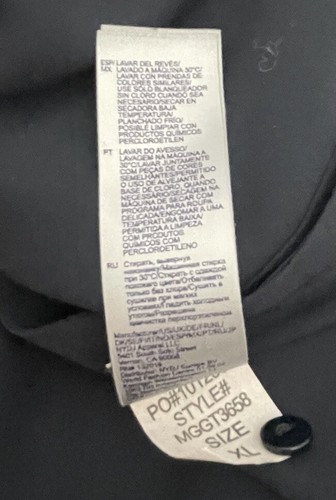 ESP/ LAVAR DEL REVES/
MX LAVADO A MÁQUINA 30°C/
LAVAR CON PRENDAS DE
COLORES SIMILARES/
USE SOLO BLANQUEADOR
SIN CLORO CUANDO SEA
NECESARIO/SECAR EN
SECADORA BAJA
TEMPERATURA/
PLANCHADO FRÍO/
POSIBLE LIMPIAR CON
PRODUCTOS QUÍMICOS
PERCLOROETILEN
PT LAVAR DO AVESSO/
LAVAGEM NA MÁQUINA A
30°C/LAVAR JUNTAMENTE
COM PEÇAS DE CORES
SEMELHANTES/PERMITIDO
O USO DE ALVEJANTE A
BASE DE CLORO, QUANDO
NECESSÁRIO/SECAGEM NA
MÁQUINA DE SECAR COM
PROGRAMA PARA ROUPA
DELICADA/ENGOMAR A UMA
TEMPERATURA BAIXA/
PERMITIDA A LIMPEZA
COM PRODUTOS
QUÍMICOS COM
PERCLOROETILENO
RU Стирать, вывернув
наизнанку/Машинная стирка
при 30°C/Стирать с одеждой
похожего цвета/Отбеливать
только без хлора/Сушить в
сушилке при мягких
условиях/Гладить холодным
утюгом/Разрешена
химчистка перхлорэтиленом
NYDJ Apparel LLC
5401 South Soto Street
Vernon, CA 90058
PO#10123
STYLE#
MGGT3658
SIZE
XL